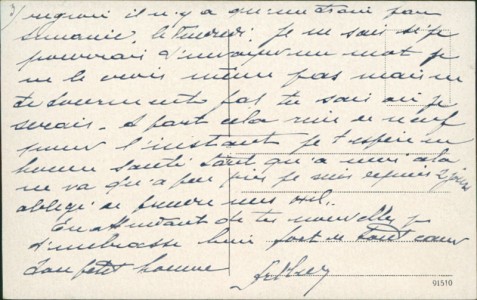 3/ ... il n'y a qu'un train par
semaine, le Vendredi. Je ne sais si je
pourrais t'envoyer un mot je
ne le crois même pas mais ne
te tourmente pas tu sais où je
serais. A part cela rien de neuf
pour l'instant je t'espère en
bonne santé tant qu'à moi cela
ne va qu'à peu près je suis depuis 2 jours
obligé de ... mes ...
En attendant de tes nouvelles je
t'embrasse bien fort de tout cœur
Ton petit homme
91510